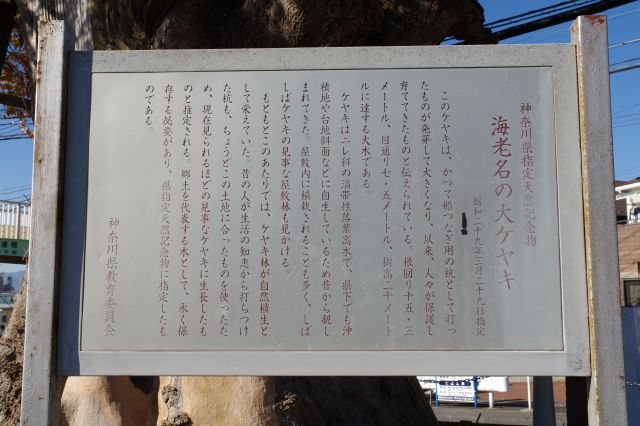 神奈川県指定天然記念物
海老名の大ケヤキ
昭和二十九年三月二十九日指定
このケヤキは、かつて船つなぎ用の杭として打っ
たものが発芽して大きくなり、以来、人々が保護し
育ててきたものと伝えられている。根回り十五・三
メートル、目通り七・五メートル、樹高二十メート
ルに達する大木である。
ケヤキはニレ科の温帯性落葉高木で、県下でも沖
積地や台地斜面などに自生しているため昔から親し
まれてきた。屋敷内に植栽されることも多く、しば
しばケヤキの見事な屋敷林も見かける。
もともとこのあたりでは、ケヤキ林が自然植生と
して栄えていた。昔の人が生活の知恵から打ちつけ
た杭も、ちょうどこの土地に合ったものを使ったた
め、現在見られるほどの見事なケヤキに生長したも
のと推定される。郷土を代表する木として、永く保
存する必要があり、県指定天然記念物に指定したも
のである。
神奈川県教育委員会